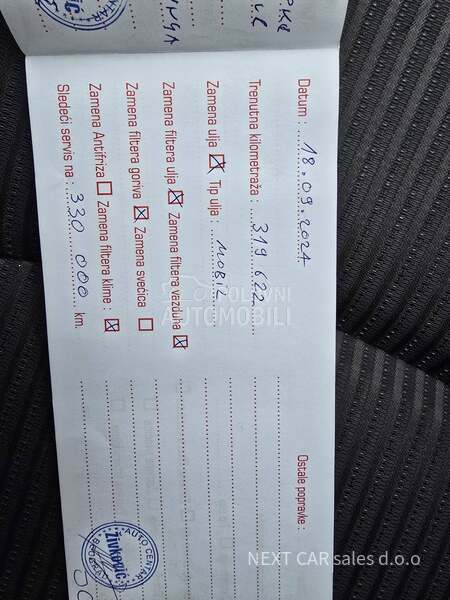 Datum : 18.09.2024
Trenutna kilometraža : 319 622
Zamena ulja Tip ulja : MOBIL
Zamena filtera ulja Zamena filtera vazduha
Zamena filtera goriva Zamena svećica
Zamena Antifriza Zamena filtera klime :
Sledeći servis na : 330 000 km.
Ostale popravke :
AUTO CENTAR
Živković
BEOGRAD
POLOVNI
AUTOMOBILI
NEXT CAR sales d.o.o